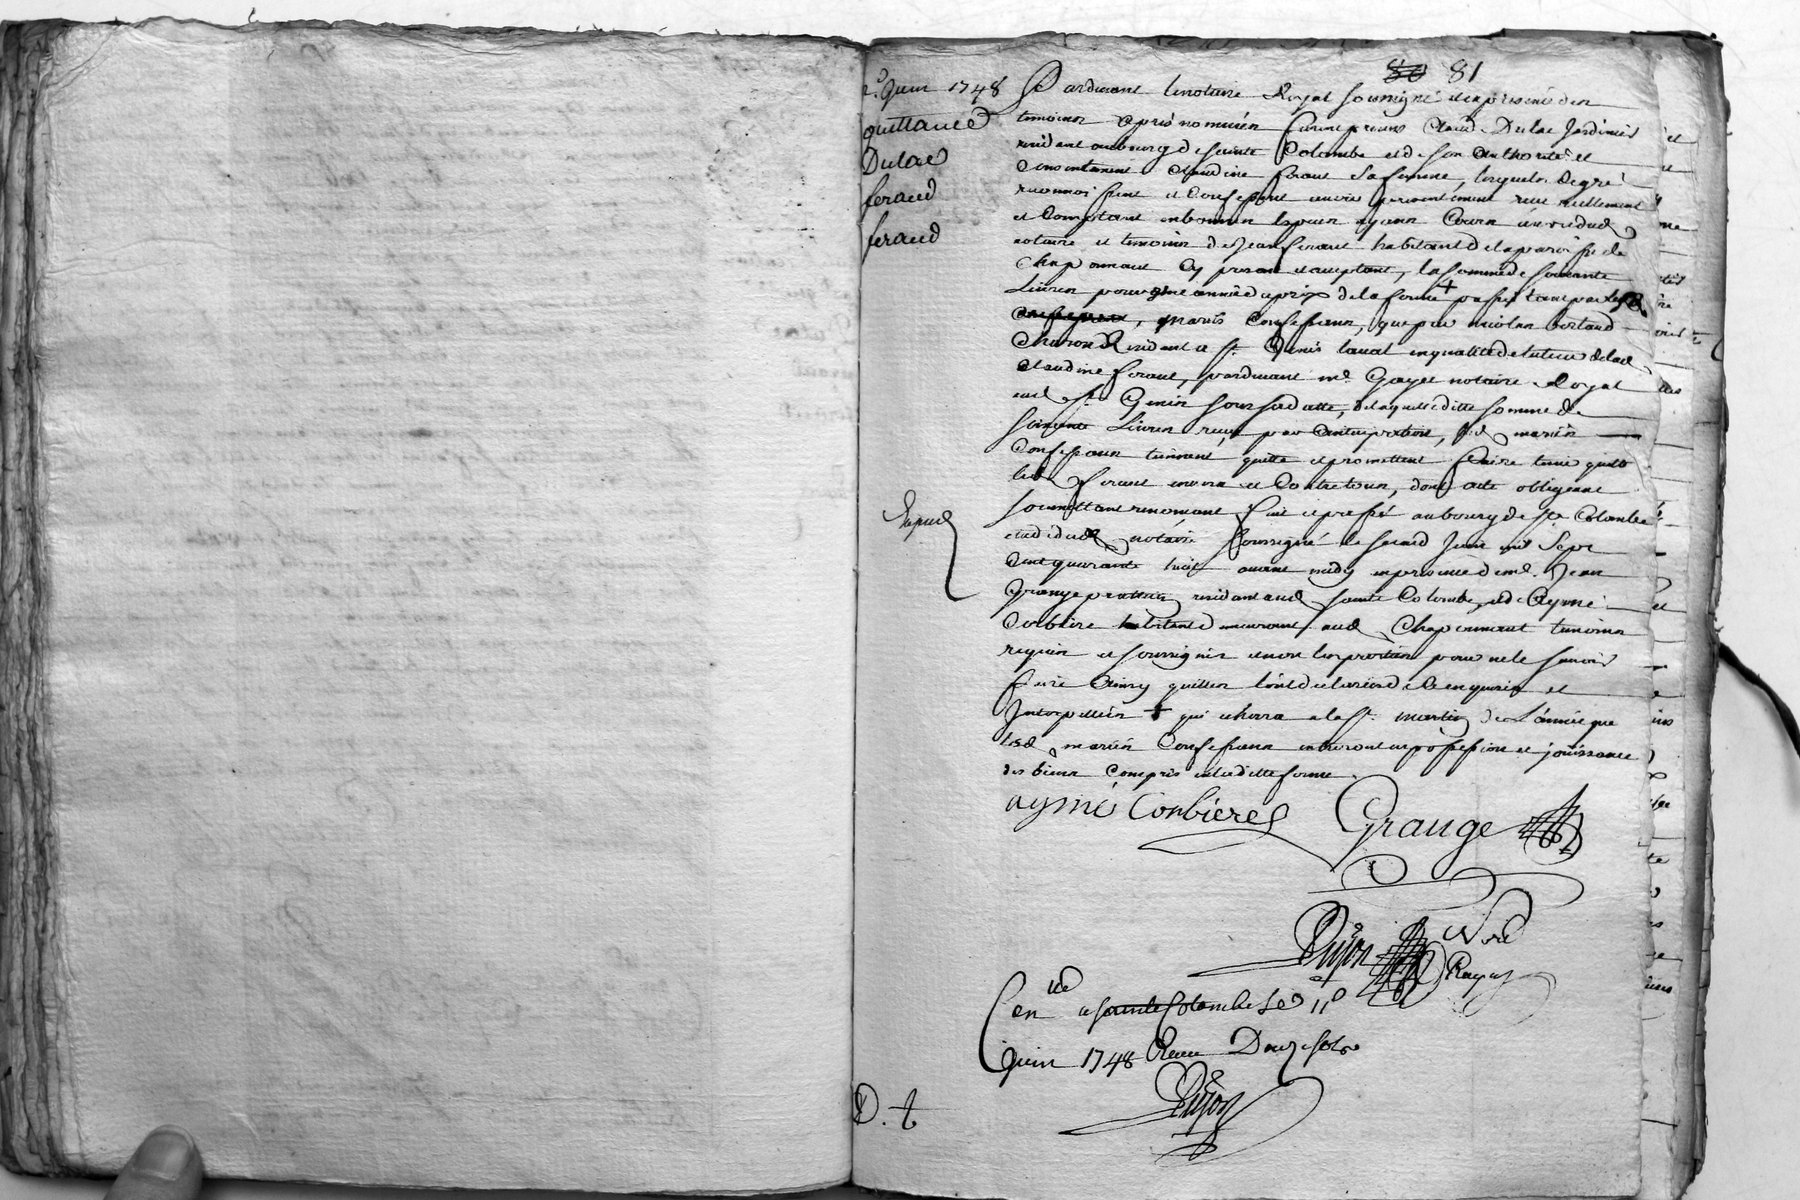 80 81
2e Juin 1748
quittance
Dulac
feraud
feraud
Pardevant le notaire Royal soussigné et en presence des
temoins apres nommés furent presens Claude Dulac Jardinier
residant au bourg de sainte Colombe et de son authorité et
Consentement Claudine feraud sa femme, lesquels de gré
reconnoissent et Confessent avoir presentement reçu reellement
et Comptant en bonnes especes ayans Cours au vu dud
notaire et temoins de Jean feraud habitant de la paroisse de
Chaponnant cy present et acceptant, la somme de soixante
Livres pour une année du prix de la ferme + passé tant par les
mariés Confessans, que par nicolas bertaud
Charon Residant a St Genis laval en qualité de tuteur de lad
Claudine feraud, pardevant me Gayet notaire Royal
aud St Genis sous sa datte, de laquelle ditte somme de
soixante Livres reçue par anticipation, led mariés
Confessans tiennent quitte et promettent faire tenir quitte
led feraud envers et Contre tous, dont acte obligeant
soumettant renonçant fait et passé au bourg de ste Colombe
etude dud notaire soussigné le second Juin mil sept
Cent quarante huit avant midy en presence de me Jean
Grange praticien residant aud sainte Colombe, et de Aymé
Corbiere habitant demeurant aud Chaponnant temoins
requis et soussignés et non les parties pour ne le savoir
faire ainsy qu'elles l'ont declaré de ce enquises et
Interpellées + qui echerra a la St martin de L'année que
lesd mariés Confessans entreront en possession et jouissance
des biens Compris en lad ditte ferme.
aymé Corbieres Grange
Dujon Nore
Royal
Con.lle a sainte Colombe Le 11e
Juin 1748 Receu Douze sols
Dujon
D. t